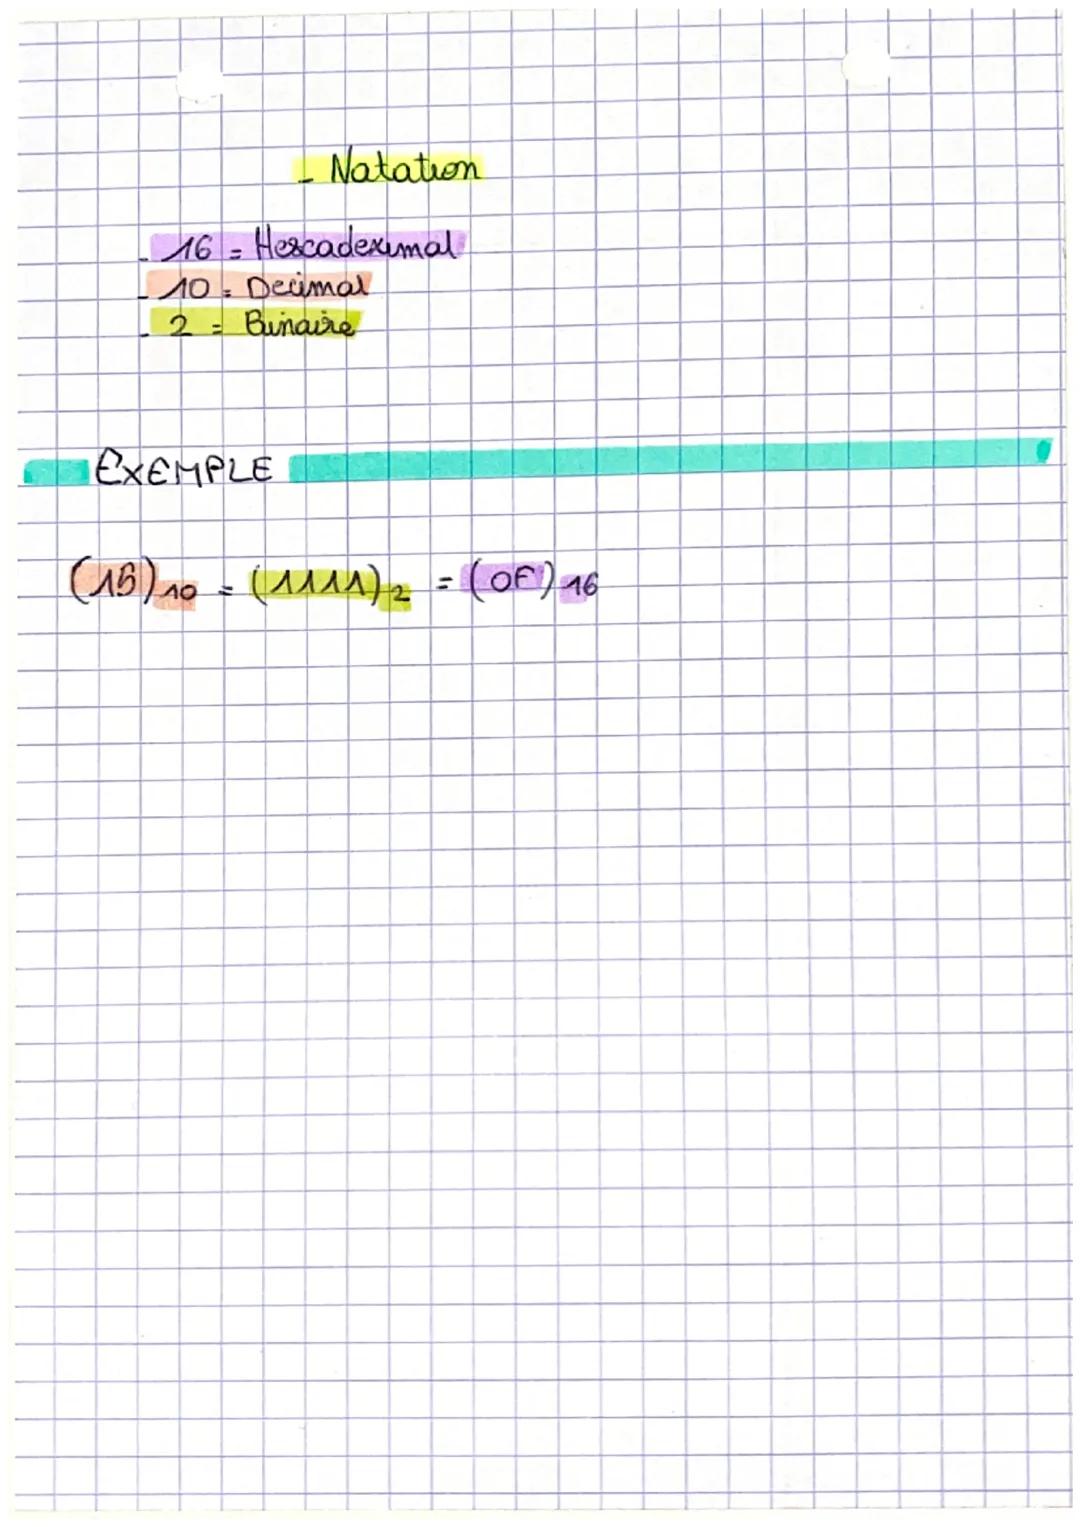 - Natation
- 16 = Hexcadeximal
- 10 = Decimal
- 2 = Binaire
EXEMPLE
(15)10 = (1111)2 = (0F)16